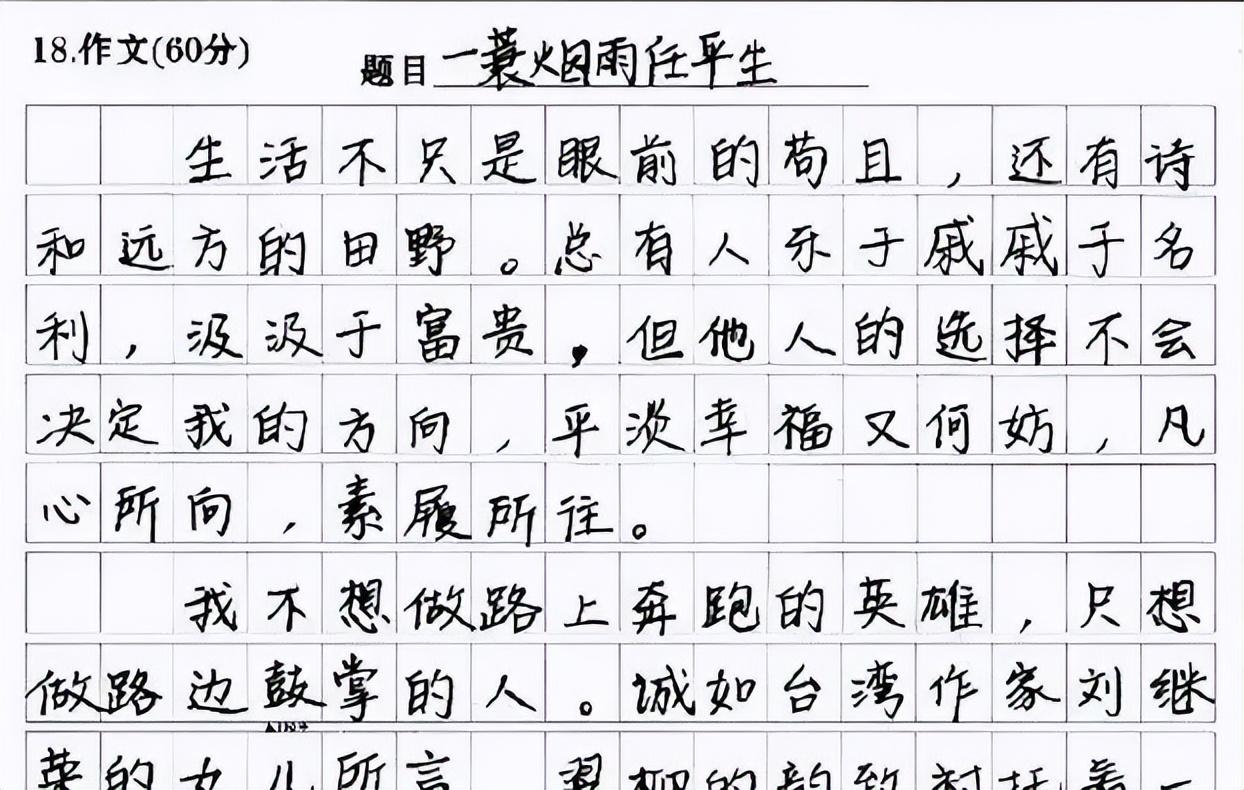 18.作文(60分)
题目 一蓑烟雨任平生
生活不只是眼前的苟且，还有诗
和远方的田野。总有人乐于戚戚于名
利，汲汲于富贵，但他人的选择不会
决定我的方向，平淡幸福又何妨，凡
心所向，素履所往。
我不想做路上奔跑的英雄，只想
做路边鼓掌的人。诚如台湾作家刘继
荣的女儿所言 的韵致衬托着一